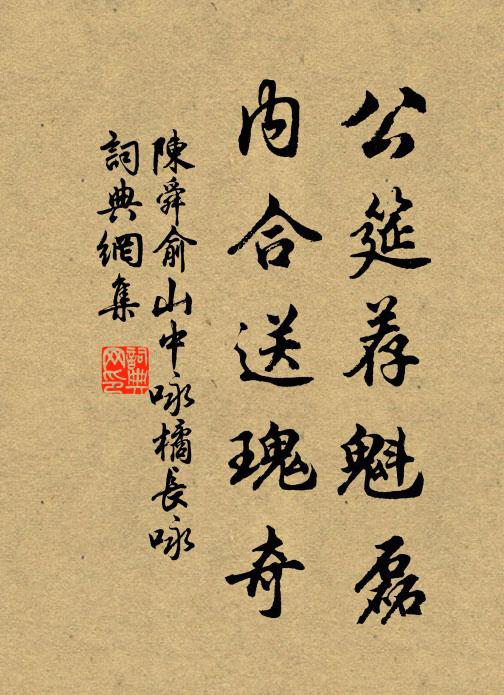 公筵荐魁磊
内合送瑰奇
陳舜俞山中咏橘長咏
詞典網集
詞典網印